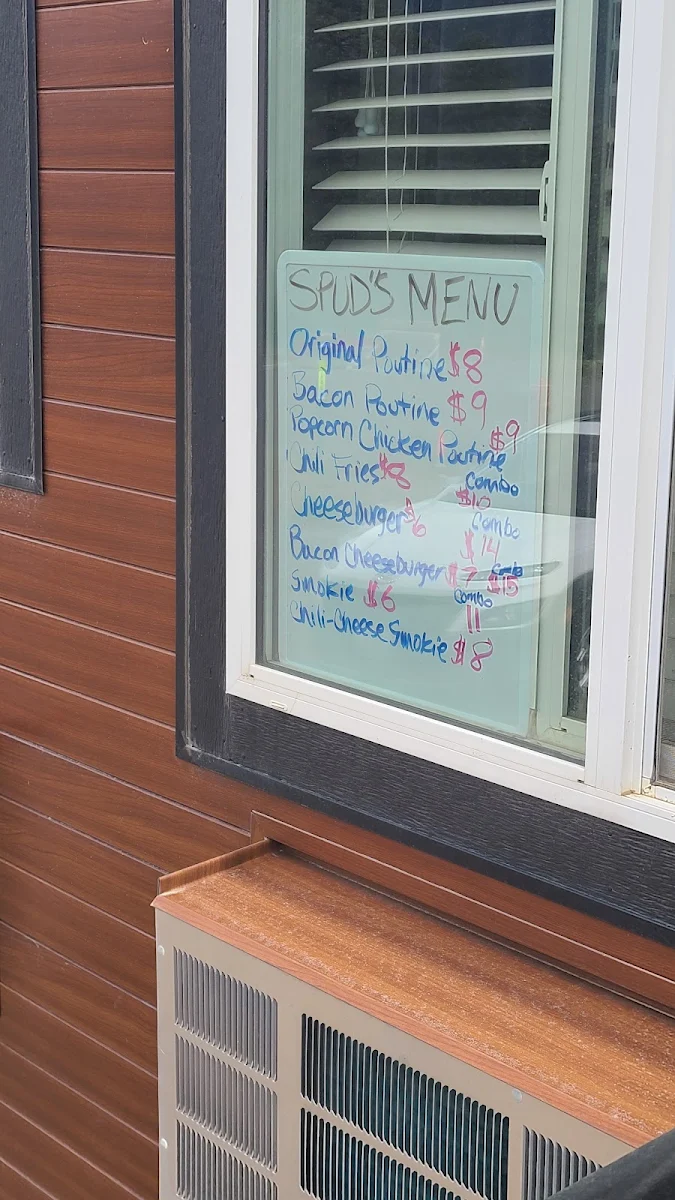 SPUD'S MENU
Original Poutine $8
Bacon Poutine $9
Popcorn Chicken Poutine $9
Chili Fries $8 Combo
$10
Cheeseburger $6 Combo
$14
Bacon Cheeseburger $7 Combo $15
Smokie $6 Combo
11
Chili-Cheese Smokie $8